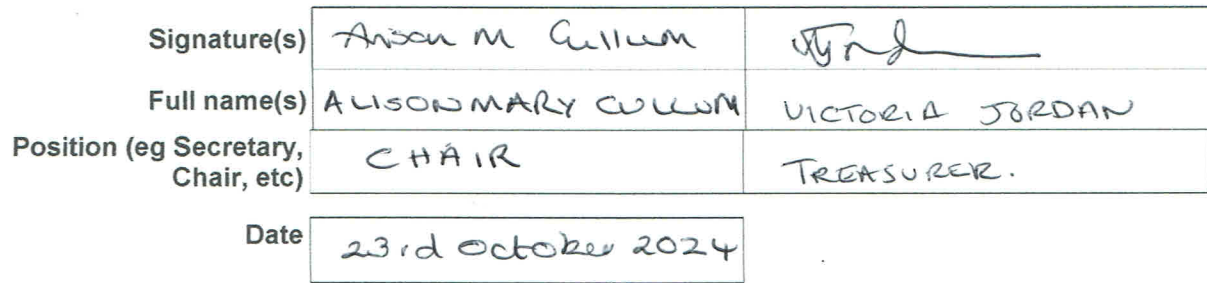 Signature(s) Alison M Cullum
Full name(s) ALISON MARY CULLUM VICTORIA JORDAN
Position (eg Secretary, Chair, etc) CHAIR TREASURER.
Date 23rd October 2024